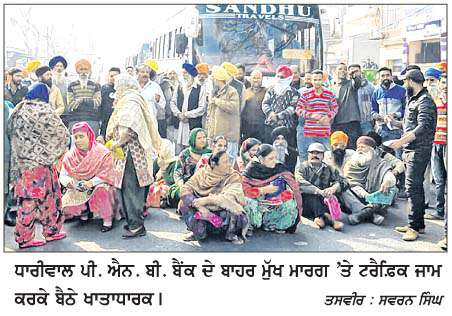 SANDHU
TRAVELS
ਧਾਰੀਵਾਲ ਪੀ. ਐਨ. ਬੀ. ਬੈਂਕ ਦੇ ਬਾਹਰ ਮੁੱਖ ਮਾਰਗ 'ਤੇ ਟਰੈਫ਼ਿਕ ਜਾਮ
ਕਰਕੇ ਬੈਠੇ ਖਾਤਾਧਾਰਕ। ਤਸਵੀਰ : ਸਵਰਨ ਸਿੰਘ